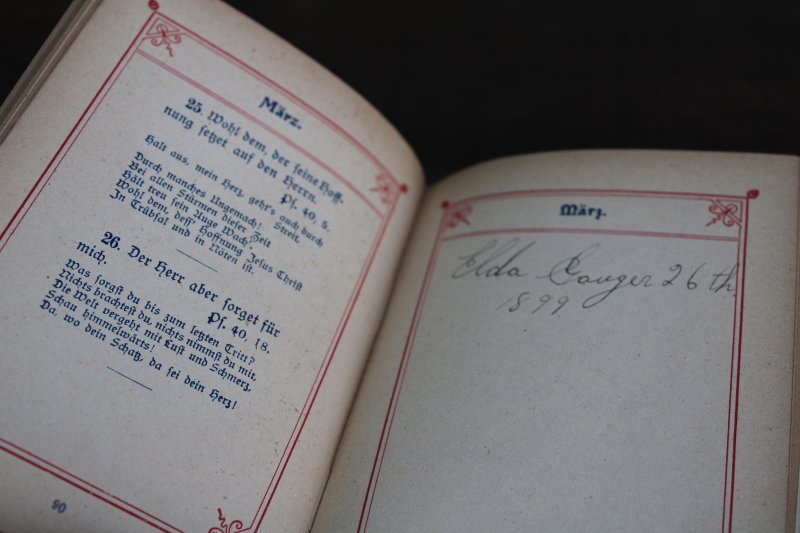 März.
25. Wohl dem, der seine Hoff-
nung setzet auf den Herrn.
Ps. 40, 5.
Halt aus, mein Herz, geht's auch durch
Streit,
Durch manches Ungemach!
Bei allen Stürmen dieser Zeit
Hält treu sein Auge Wach!
Wohl dem, dess' Hoffnung Jesus Christ
In Trübsal und in Nöten ist.
26. Der Herr aber sorget für
mich.
Ps. 40, 18.
Was sorgst du bis zum letzten Tritt?
Nichts brachtest du, nichts nimmst du mit,
Die Welt vergeht mit Lust und Schmerz,
Schau himmelwärts!
Da, wo dein Schatz, da sei dein Herz!
90
März.
Elda Gauger 26 th
1899